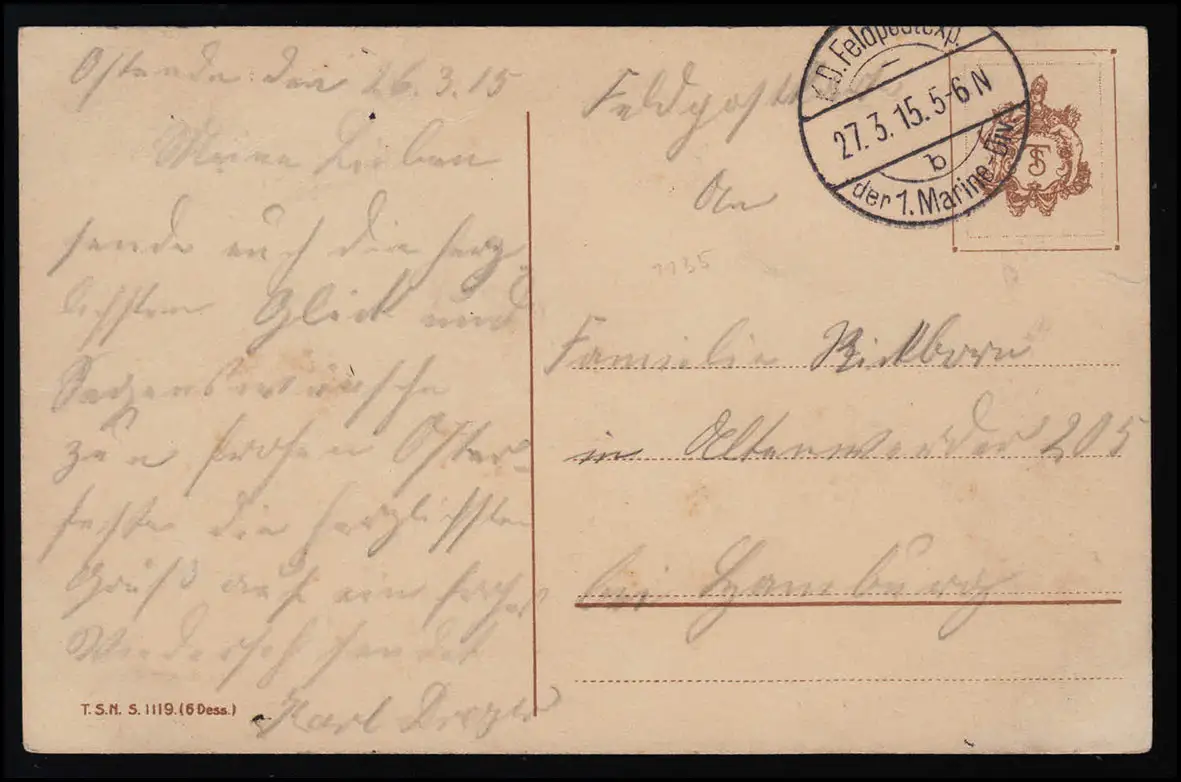 Ostende den 26.3.15
Meine Lieben
sende euch die herz-
lichsten Glück und
Segenswünsche
zum frohen Oster-
feste die herzlichsten
Grüß auf ein frohes
Wiedersehn sendet
Karl
T.S.N. S. 1119. (6 Dess.)
Feldpostkarte
An
1135
Familie Rickborn
in Altenwerder 205
bei Hamburg
K.D. Feldpostexp.
27.3.15. 5-6 N
b
der 1. Marine-Div.
TS